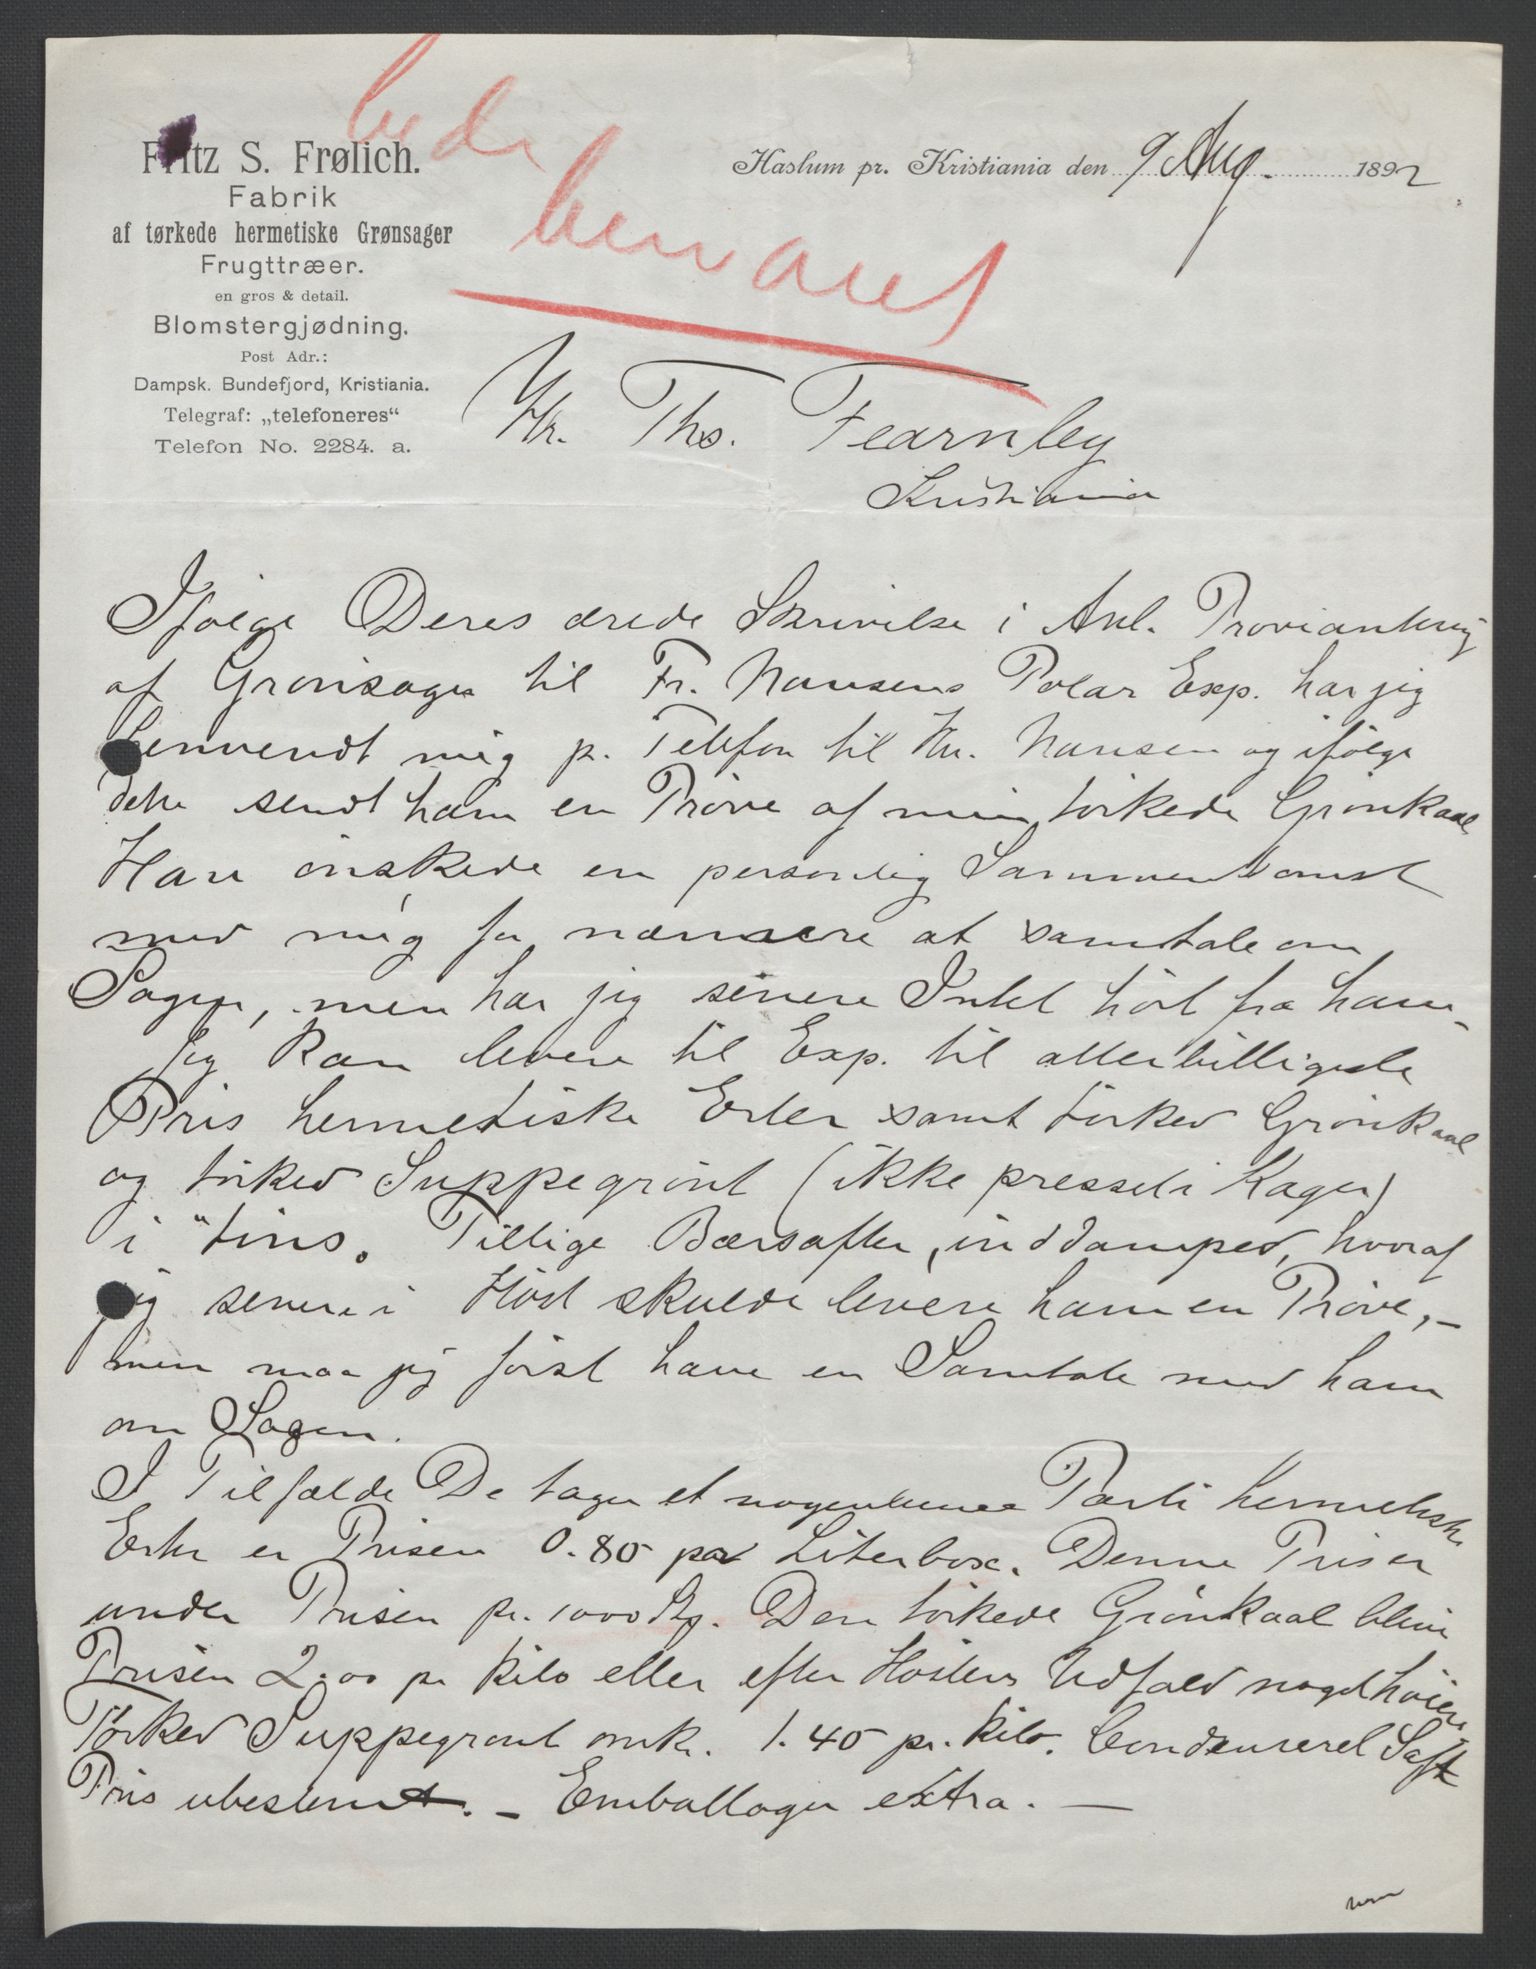 Fritz S. Frølich.
Fabrik
af tørkede hermetiske Grønsager
Frugttræer.
en gros & detail.
Blomstergjødning.
Post Adr.:
Dampsk. Bundefjord, Kristiania.
Telegraf: „telefoneres“
Telefon No. 2284. a.
Haslum pr. Kristiania den 9 Aug. 1892
besvaret
Hr. Ths. Fearnley
Kristiania
Ifølge Deres ærede Skrivelse i Anl. Proviantering
af Grønsager til Fr. Nansens Polar Exp. har jeg
henvendt mig p. Telefon til Hr. Nansen og ifølge
dette sendt ham en Prøve af min tørkede Grønkaal
Han ønskede en personlig Sammenkomst
med mig for nærmere at samtale om
Sagen, men har jeg senere Intet hørt fra ham.
Jeg kan levere til Exp. til allerbilligste
Pris hermetiske Erter samt tørket Grønkaal
og tørket Suppegrønt (ikke presset i Kager)
i "tins. Tillige Bærsafter, inddampet, hvoraf
jeg senere i Høst skulde levere ham en Prøve,-
men maa jeg først have en Samtale med ham
om Sagen.
I Tilfælde De tager et nogenlunde Parti hermetiske
Erter er Prisen 0.80 pr Literbox. Denne Pris er
under Prisen pr. 1000 Stg. Den tørkede Grønkaal bliver
Prisen 2.00 pr kilo eller efter Høstens Udfald noget høiere
Tørket Suppegrønt omkr. 1.40 pr. kilo. Condenseret Saft
Pris ubestemt. - Emballager extra. —